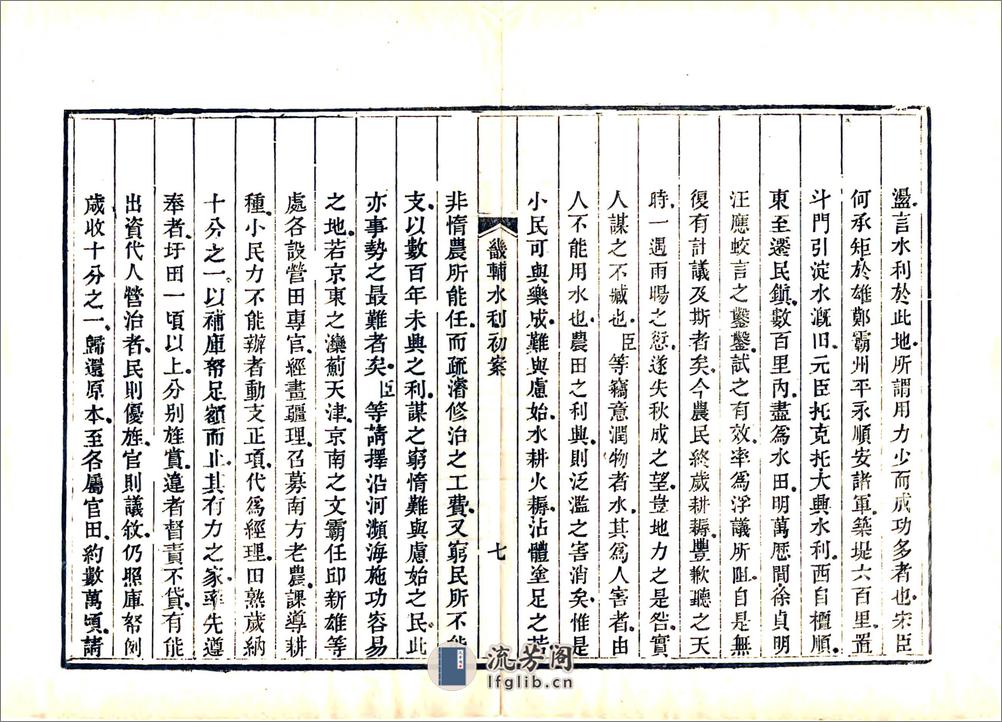 盪言水利於此地所謂用力少而成功多者也宋臣
何承矩於雄鄚霸州平永順安諸軍築堤六百里置
斗門引淀水溉旧元臣托克托大興水利西自檀順
東至遷民鎮數百里內盡爲水田明萬歷間徐貞明
汪應蛟言之鑿鑿試之有效率爲浮議所阻自是無
復有計議及斯者矣今農民終歲耕耨豐歉聽之天
時一遇雨暘之愆遂失秋成之望豈地力之是咎實
人謀之不臧也臣等竊意潤物者水其爲人害者由
人不能用水也農田之利興則泛濫之害消矣惟是
小民可與樂成難與慮始水耕火耨沾體塗足之苦
畿輔水利初案
七
非惰農所能任而疏濬修治之工費又窮民所不能
支以數百年未興之利謀之窮惰難與慮始之民此
亦事勢之最難者矣臣等請擇沿河瀕海施功容易
之地若京東之灤薊天津京南之文霸任邱新雄等
處各設營田專官經畫疆理召募南方老農課導耕
種小民力不能辦者動支正項代爲經理田熟歲納
十分之一以補庫帑足額而止其有力之家率先遵
奉者圩田一頃以上分別旌賞違者督責不貸有能
出資代人營治者民則優旌官則議敘仍照庫帑例
歲收十分之一歸還原本至各屬官田約數萬頃請
流芳阁
lfglib.cn